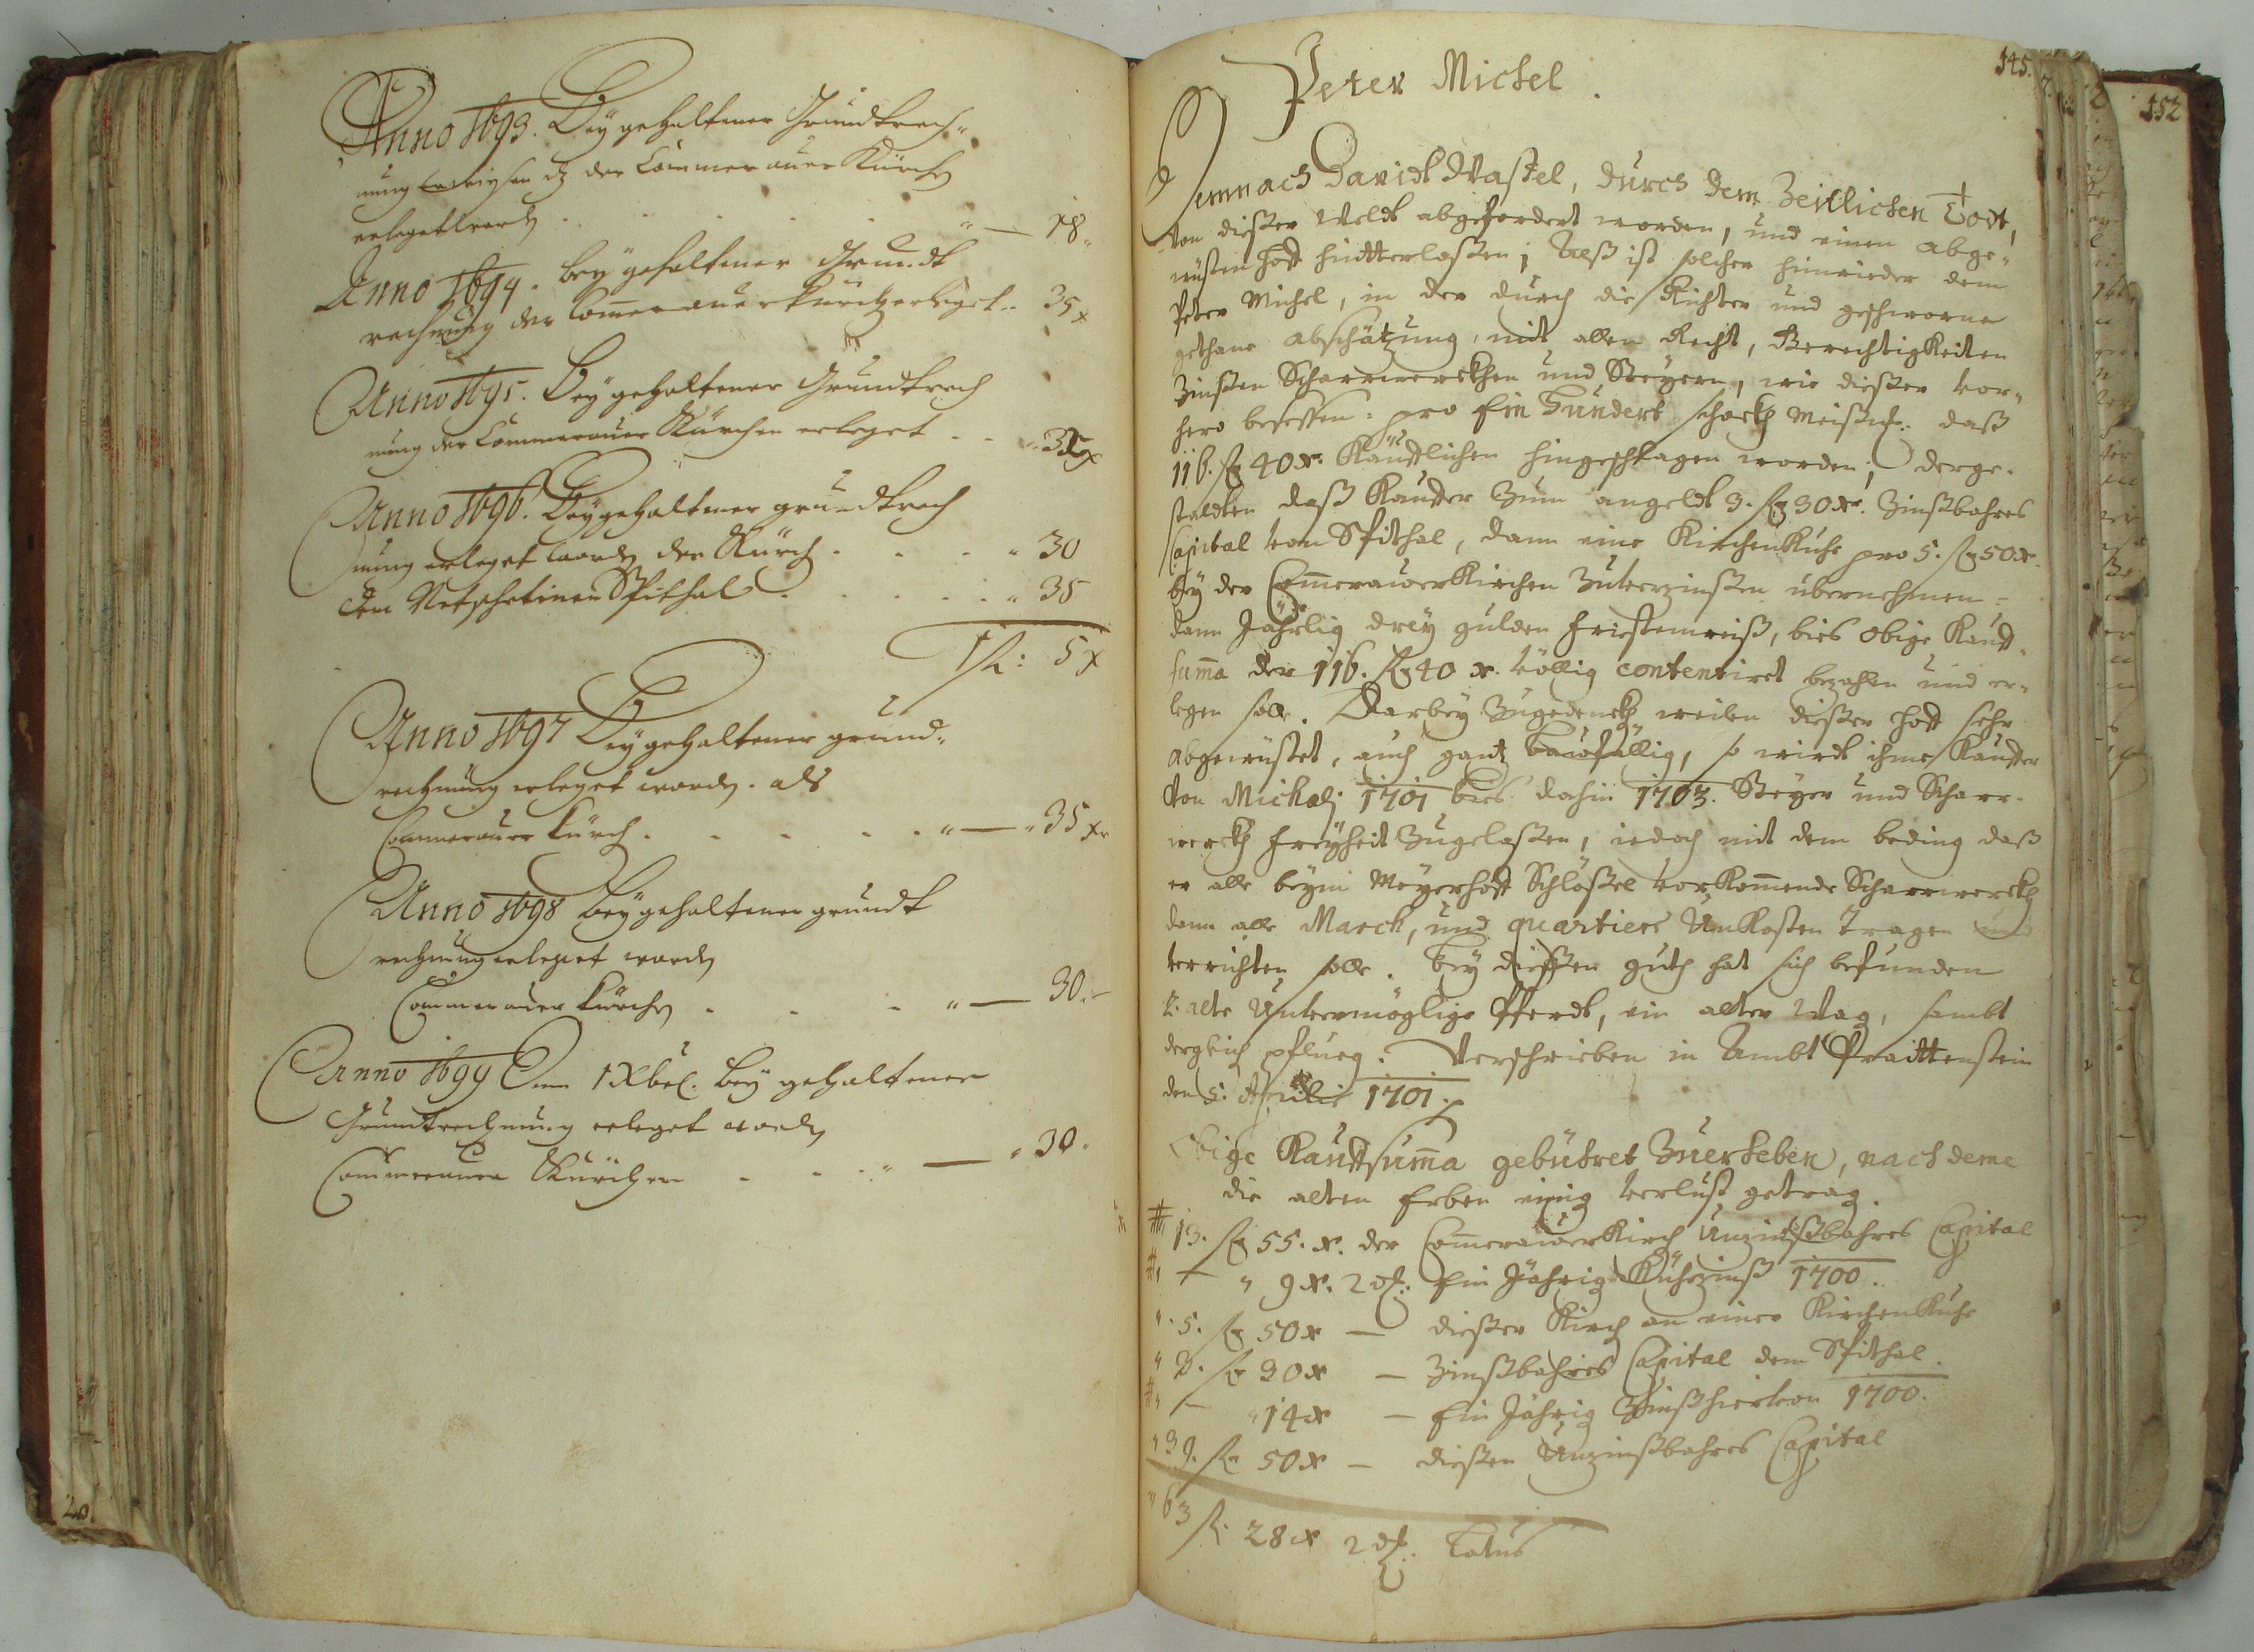 Anno 1693. Bey gehaltener Grundtrech„
nung der Commerauer Kürch
erleget word. . . . . . „ — 18„
Anno 1694. bey gehaltener Grundt
rechnung der Comerauer Kürch erleget „ 35 x
Anno 1695. Bey gehaltener Grundtrech
nung der Commerauer Kürchen erleget . . „ 35 x
Anno 1696. Bey gehaltener grundtrech
nung erleget word. der Kürch . . . „ 30
dem Netschetiner Spithal . . . . . „ 35
1 ß: 5 x
Anno 1697 Bey gehaltener grund„
rechnung erleget word. als
Commerauer Kürch . . . . . „ — „ 35 xr
Anno 1698 bey gehaltener grundt
rechnung erleget word.
Commerauer Kürch . . . „ — 30.
Anno 1699 Den 1 Xbel. bey gehaltener
Grundtrechnung erleget word.
Commerauer Kürchen . . . „ — „ 30.
20.
Peter Michel.
145.
152
Demnach Davidt Wastel, durch dem Zeitlichen Todt,
von dießer Weldt abgefordert worden, und einen abge„
wüsten hoff hintterlaßen; Alß ist solcher hinwieder dem
Peter Michel, in der durch die Richter und geschworne
gethane abschätzung, mit allen Recht, Gerechtigkeiten
Zinßen Scharrwerckhen und Steyern, wie dießer vor„
hero beseßen: pro Ein hundert schockh Meißn: daß
116. ß 40 x. Käufflichen hingeschlagen worden; derge„
staldten daß Kauffer Zum angeldt 3. ß 30 xr. Zinßbahres
Capital vom Spithal, dann eine Kirchenkuhe pro 5. ß 50 x.
bey der Comerauer Kirchen Zuverzinßen übernehmen
dann Jährlig drey gulden friestenweiß, bies obige Kauff„
suma der 116. ß 40 x. völlig contentiret bezahlen und er„
legen solle. Darbey Zugedenckh, weilen dießer hoff sehr
abgewüstet, auch gantz baufällig, so wirdt ihme Kauffer
von Michaeli 1701 bies dahin 1703. Steyer und Scharr„
werckh freyheit Zugelaßen, iedoch mit dem beding daß
er alle beym Meyerhoff Schlößel vorkomende Scharrwerckh
dann alle March, und quartiers Unkosten Tragen und
verrichten solle. bey dießem guth hat sich befunden
2. alte Unvermöglige Pferdt, ein alter Wag, sambt
dergleich pflueg. Verschrieben in Ambt Praittenstein
den 5: Aprilis 1701.
Obige Kauffsuma gebühret Zuerheben, nach deme
die alten Erben einig verlust getrag.
# 13. ß 55. x. der Comerauer Kirch Unzinßbahres Capital
# „ — „ 9 x. 2 d: Ein Jährig Kühezinß 1700.
„ 5. ß 50 x — dießer Kirch an einer Kirchenkuhe
„ 3. ß 30 x — Zinßbahres Capital dem Spithal.
# „ — „ 14 x — Ein Jährig Zinß hiervon 1700.
„ 39. ß 50 x — dießen Unzinßbahres Capital
„ 63 ß 28 x 2 d: Latus